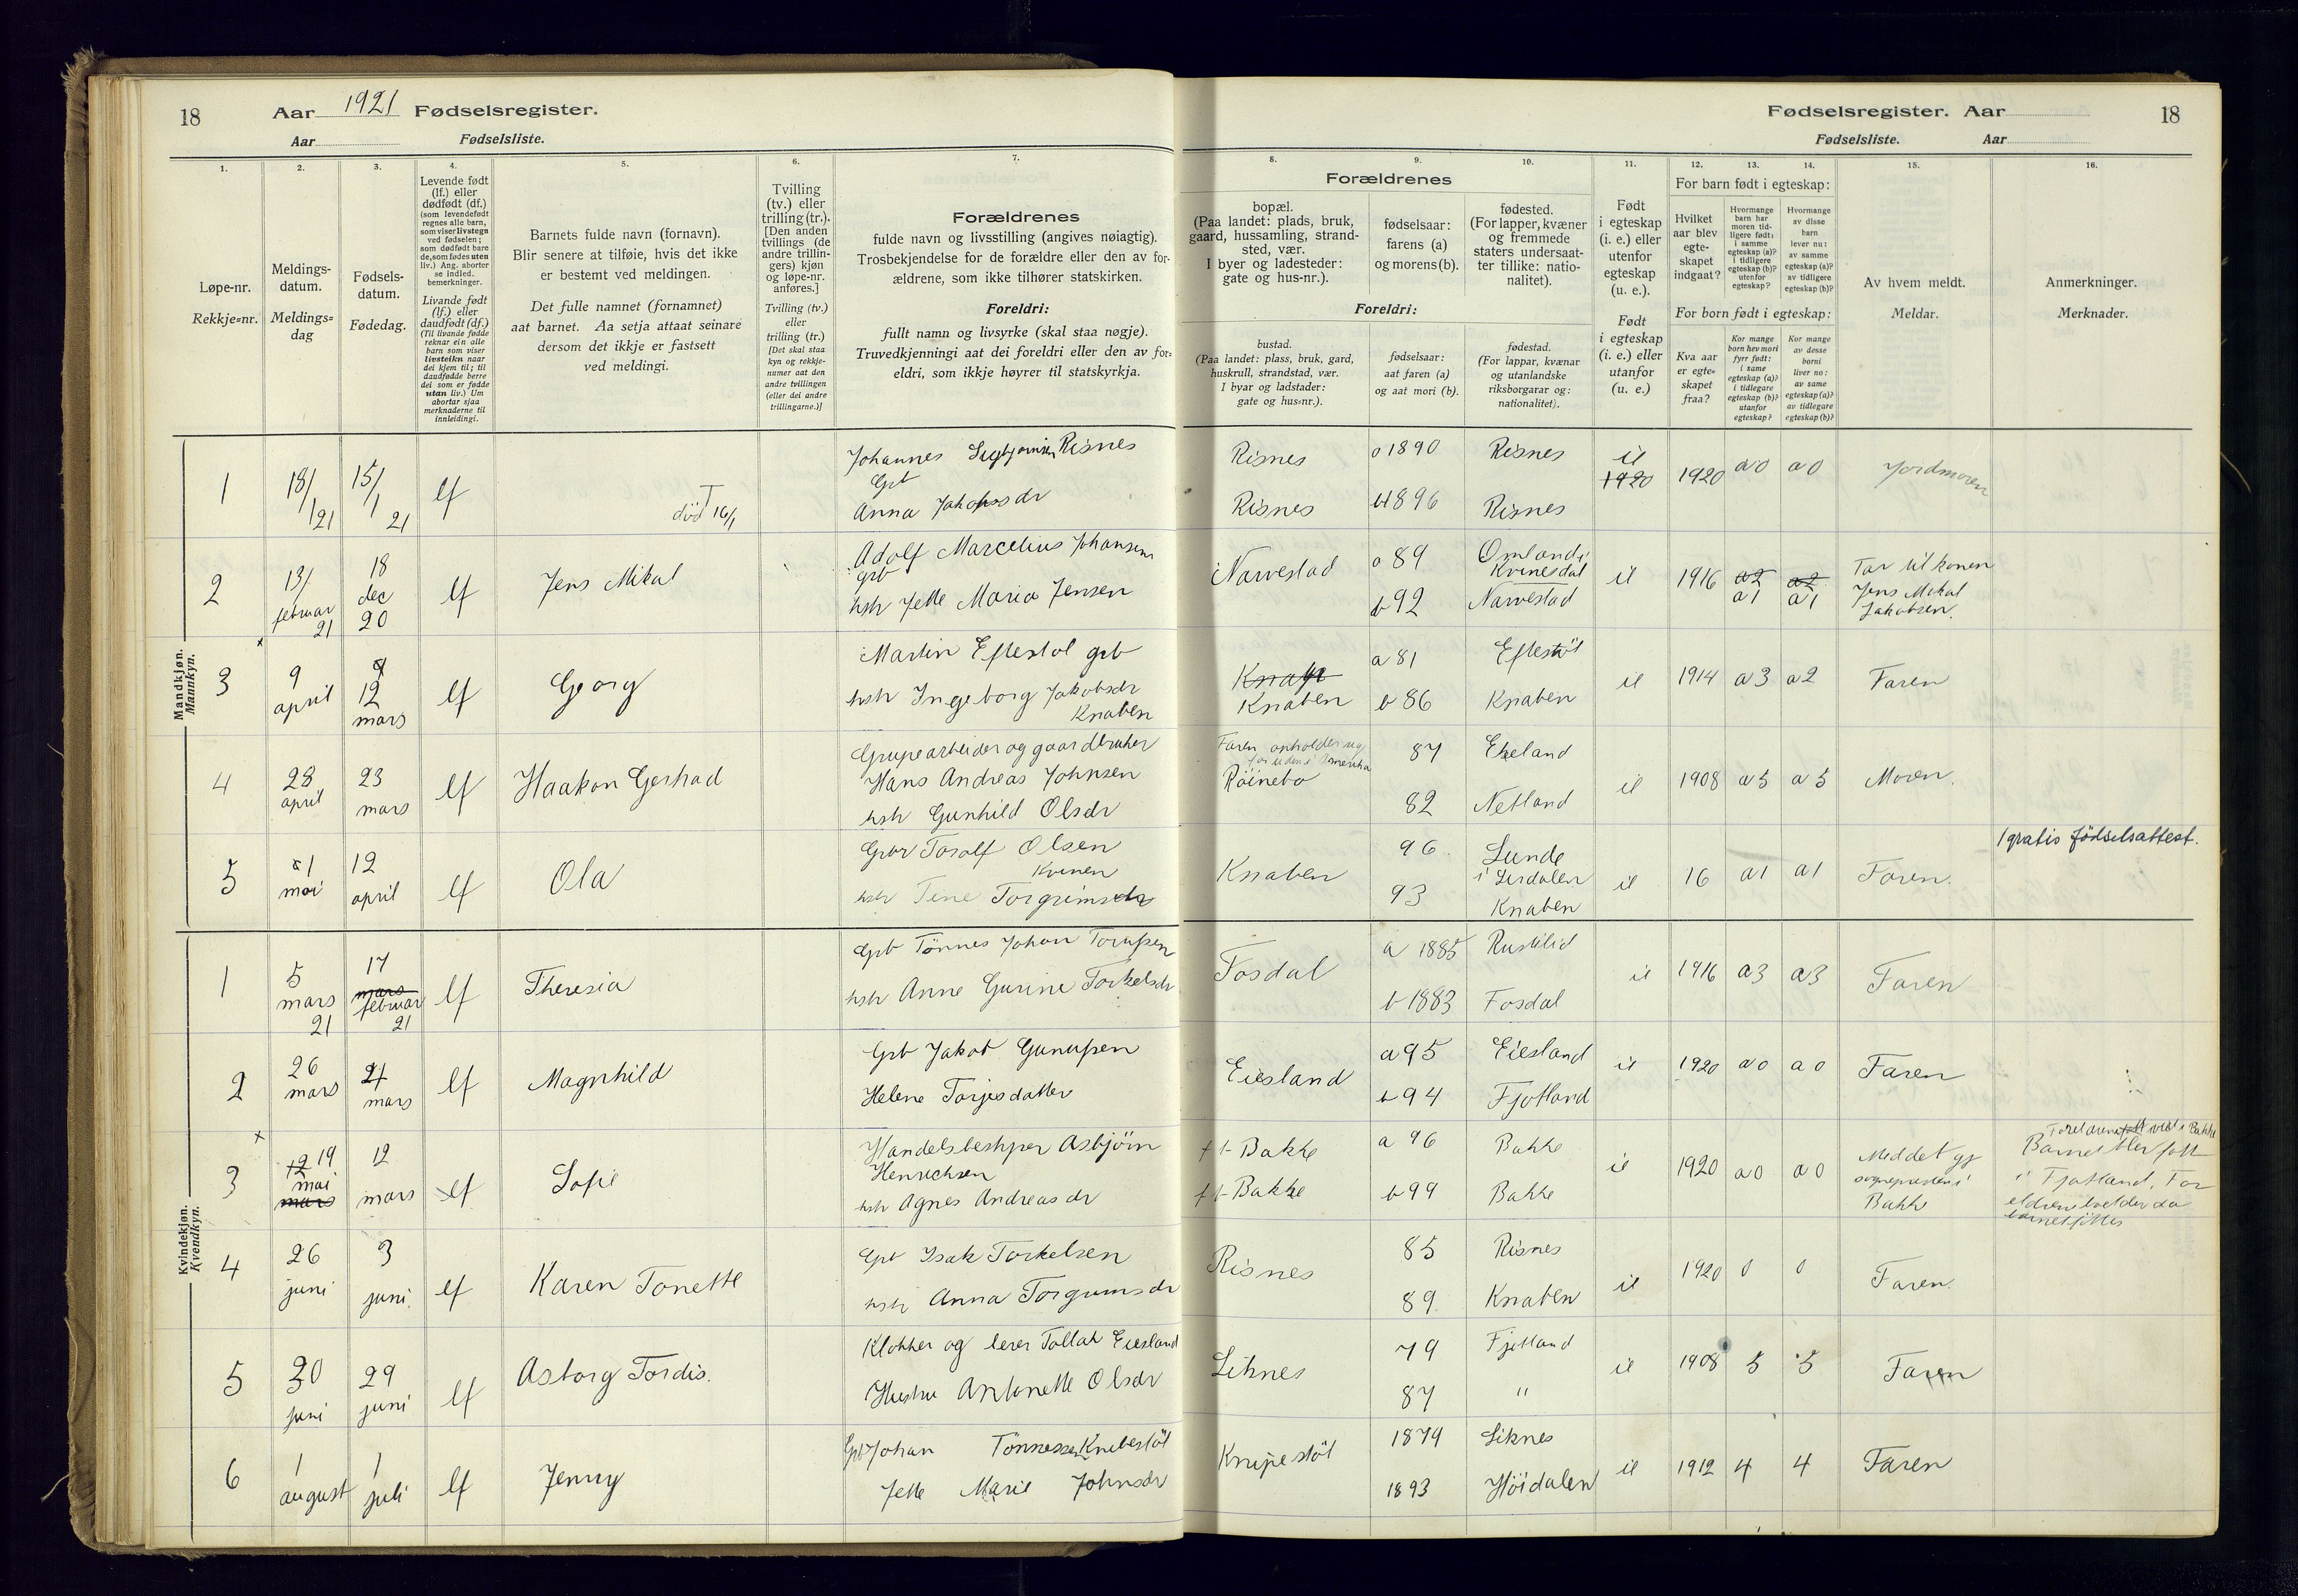 18
Aar 1921 Fødselsregister.
Aar Fødselsliste.
Fødselsregister. Aar
18
Fødselsliste. Aar
1.
Løpe-nr.
Rekkje-nr.
2.
Meldings-
datum.
Meldings-
dag
3.
Fødsels-
datum.
Fødedag.
4.
Levende født
(lf.) eller
dødfødt (df.)
(som levendefødt
regnes alle barn,
som viser livstegn
ved fødselen;
som dødfødt bare
de, som fødes uten
liv.) Ang. aborter
se indled.
bemerkninger.
Livande født
(lf.) eller
daudfødt (df.)
(Til livande fødde
reknar ein alle
barn som viser
livsteikn naar
dei kjem til; til
daudfødde berre
dei som er fødde
utan liv.) Um
abortar sjaa
merknaderne til
innleidingi.
5.
Barnets fulde navn (fornavn).
Blir senere at tilføie, hvis det ikke
er bestemt ved meldingen.
Det fulle namnet (fornamnet)
aat barnet. Aa setja attaat seinare
dersom det ikkje er fastsett
ved meldingi.
6.
Tvilling
(tv.) eller
trilling (tr.).
[Den anden
tvillings (de
andre trillin-
gers) kjøn
og løpe-nr.
anføres.]
Tvilling (tv.)
eller
trilling (tr.)
[Det skal staa
kyn og rekkje-
numer aat den
andre tvillingen
(eller dei andre
trillingarne.)]
7.
Forældrenes
fulde navn og livsstilling (angives nøiagtig).
Trosbekjendelse for de forældre eller den av for-
ældrene, som ikke tilhører statskirken.
Foreldri:
fullt namn og livsyrke (skal staa nøgje).
Truvedkjenningi aat dei foreldri eller den av for-
eldri, som ikkje høyrer til statskyrkja.
Forældrenes
8.
bopæl.
(Paa landet: plads, bruk,
gaard, hussamling, strand-
sted, vær.
I byer og ladesteder:
gate og hus-nr.).
9.
fødselsaar:
farens (a)
og morens (b).
10.
fødested.
(For lapper, kvæner
og fremmede
staters undersaat-
ter tillike: natio-
nalitet).
Foreldri:
bustad.
(Paa landet: plass, bruk, gard,
huskrull, strandstad, vær.
I byar og ladstader:
gate og hus-nr.).
fødselsaar:
aat faren (a)
og aat mori (b).
fødestad.
(For lappar, kvænar
og utanlandske
riksborgarar og:
nationalitet).
11.
Født
i egteskap
(i. e.) eller
utenfor
egteskap
(u. e.).
Født
i egteskap
(i. e.) eller
utanfor
(u. e.)
For barn født i egteskap:
12.
Hvilket
aar blev
egte-
skapet
indgaat?
13.
Hvormange
barn har
moren tid-
ligere født:
i samme
egteskap (a)?
i tidligere
egteskap (b)?
utenfor
egteskap?
14.
Hvormange
av disse
barn
lever nu:
av samme
egteskap (a)?
av tidligere
egteskap (b)?
For born født i egteskap:
Kva aar
er egte-
skapet
fraa?
Kor mange
born hev mori
fyrr født:
i same
egteskap (a)?
i tidlegare
egteskap (b)?
utanfor
egteskap?
Kor mange
av desse
borni
liver no:
av same
egteskap (a)?
av tidlegare
egteskap (b)?
15.
Av hvem meldt.
Meldar.
16.
Anmerkninger.
Merknader.
Mandkjøn.
Mannkyn.
1 18/1 21 15/1 21 lf
død 16/1
Johannes Sigbjørnsen Risnes
Gb
Anna Jakobsdr
Risnes a 1890 Risnes
Risnes b 1896 Risnes
1920 1920 a0 a0 Jordmoren
2 13/ februar 21 18 dec 20 lf Jens Mikal
Adolf Marcelius Johansen
grb
hstr Jette Maria Jensen
Narvestad a 89 Omland i
Kvinesdal
b 92 Narvestad
1916 a2 a2
a1 a1
Far til konen
Jens Mikal
Jakobsen.
3 9 april 12 mars lf Georg
Martin Eftestøl grb
hstr Ingeborg Jakobsdr
Knaben
Knaben
a 81 Eftestøl
b 86 Knaben
1914 a3 a2 Faren
4 28 april 23 mars lf Haakon Gerhad
Grupearbeider og gaardbruker
Hans Andreas Johnsen
hstr Gunhild Olsdr
Faren opholder sig
for tiden i Amerika
Röinebo
87 Ekeland
82 Netland
1908 a5 a5 Moren.
5 1 mai 12 april lf Ola
Gbr Torolf Olsen
Kvinen
hstr Tine Torgrimsdr
Knaben 96. Lunde
i Sirdalen
93 Knaben
16 a1 a1 Faren.
1 gratis fødselsattest.
Kvindekjøn.
Kvendkyn.
1 5 mars 21 17 mars februar 21 lf Theresia
Gb Tönnes Johan
hstr Anne Gurine Torkelsdr
Fosdal a 1885
b 1883 Fosdal
1916 a3 a3 Faren
2 26 mars 21 mars lf Magnhild
Gb Jakob
Helene Torjusdatter
Eiesland a 95 Eiesland
b 94 Fjotland
1920 a0 a0 Faren
3 12 19 mai mars 12 mars lf Sofie
Handelsbestyrer Asbjörn
Henrichsen
hstr Agnes Andreasdr
Bakke a 96 Bakke
Bakke b 99 Bakke
1920 a0 a0
Meddet
sognepresten i
Bakke
Barnet blev født
i Fjotland, For
barnet føttes
4 26 juni 3 juni lf Karen Tonette
Gb Isak Torkelsen
hstr Anna Torgrimsdr
Risnes 85 Risnes
89 Knaben
1920 0 0 Faren.
5 30 juni 29 juni lf Asborg Tordis.
Klokker og lærer Tallak Eiesland
Hustru Antonette Olsdr
Liknes 79 Fjotland
87 "
1908 5 5 Faren
6 1 august 1 juli lf Jenny
Gb Johan Tönnessen Knibestöl
Jette Marie Johnsdr
Knipestöl 1879 Liknes
1893 Höidalen
1912 4 4 Faren